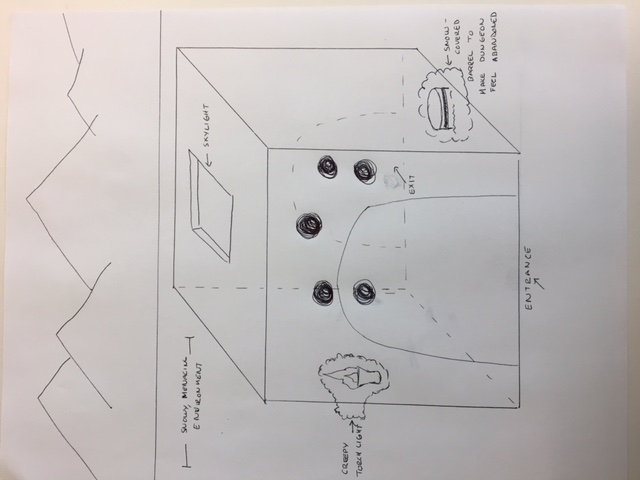 SNOWY, MENACING
ENVIRONMENT
SKYLIGHT
CREEPY
TORCH LIGHT
EXIT
SNOW-
COVERED
BARREL TO
MAKE DUNGEON
FEEL ABANDONED
ENTRANCE